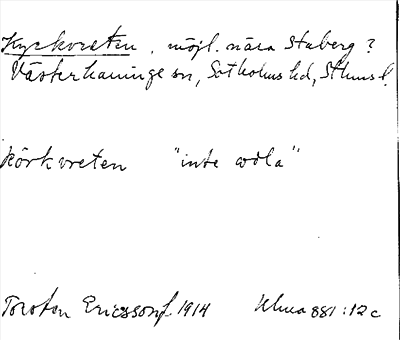 Kyrkvreten, möjl. nära Staberg?
Västerhaninge sn, Sotholms hd, Sthms l.
Körkvreten "inte odla"
Torsten Ericsson 1914 Ulma 881:12c